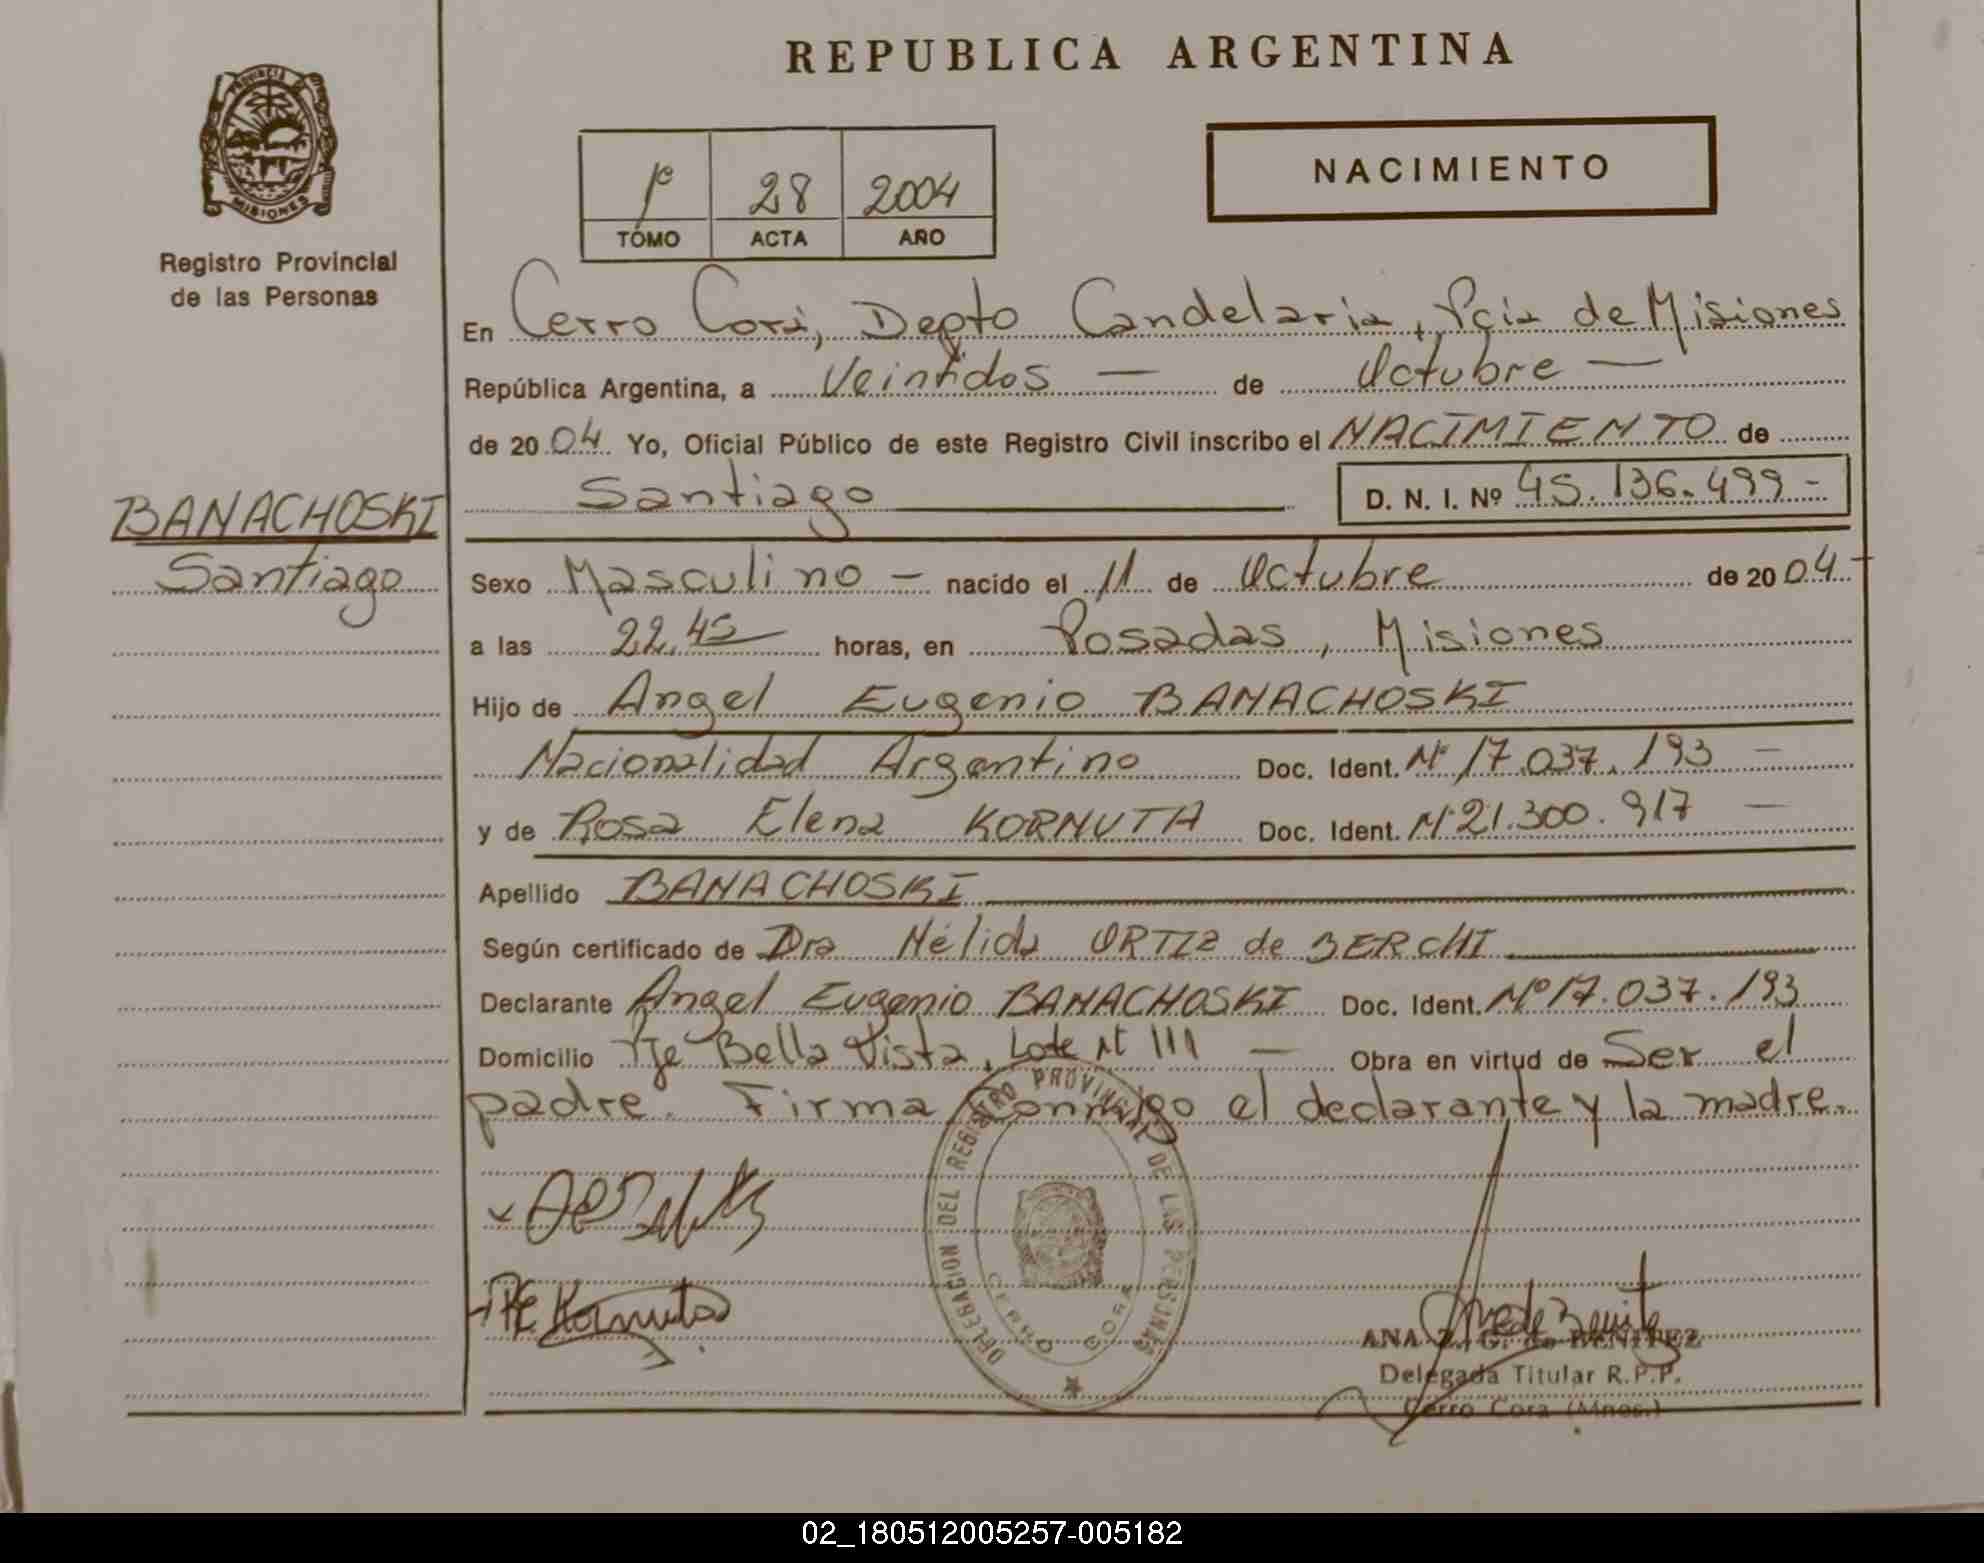 REPUBLICA ARGENTINA
PROVINCIA DE
MISIONES
Registro Provincial
de las Personas
1º 28 2004
TOMO ACTA AÑO
NACIMIENTO
En Cerro Corá, Depto Candelaria, Pcia de Misiones
República Argentina, a Veintidos — de Octubre —
de 2004 Yo, Oficial Público de este Registro Civil inscribo el NACIMIENTO de
Santiago D. N. I. Nº 45.136.499 -
BANACHOSKI
Santiago
Sexo Masculino — nacido el 11 de Octubre de 2004 -
a las 22,45 horas, en Posadas, Misiones
Hijo de Angel Eugenio BANACHOSKI
Nacionalidad Argentino Doc. Ident. Nº 17.037.193 —
y de Rosa Elena KORNUTA Doc. Ident. Nº 21.300.917 —
Apellido BANACHOSKI
Según certificado de Dra Nélida ORTIZ de BERCHI
Declarante Angel Eugenio BANACHOSKI Doc. Ident. Nº 17.037.193
Domicilio Pje Bella Vista, Lote Nº 111 — Obra en virtud de Ser el
padre. Firma conmigo el declarante y la madre.
DELEGACION DEL REGISTRO PROVINCIAL DE LAS PERSONAS
CERRO CORA
RE Kornuta
ANA Z. G. de BENITEZ
Delegada Titular R.P.P.
Cerro Cora (Mnes.)
02_180512005257-005182